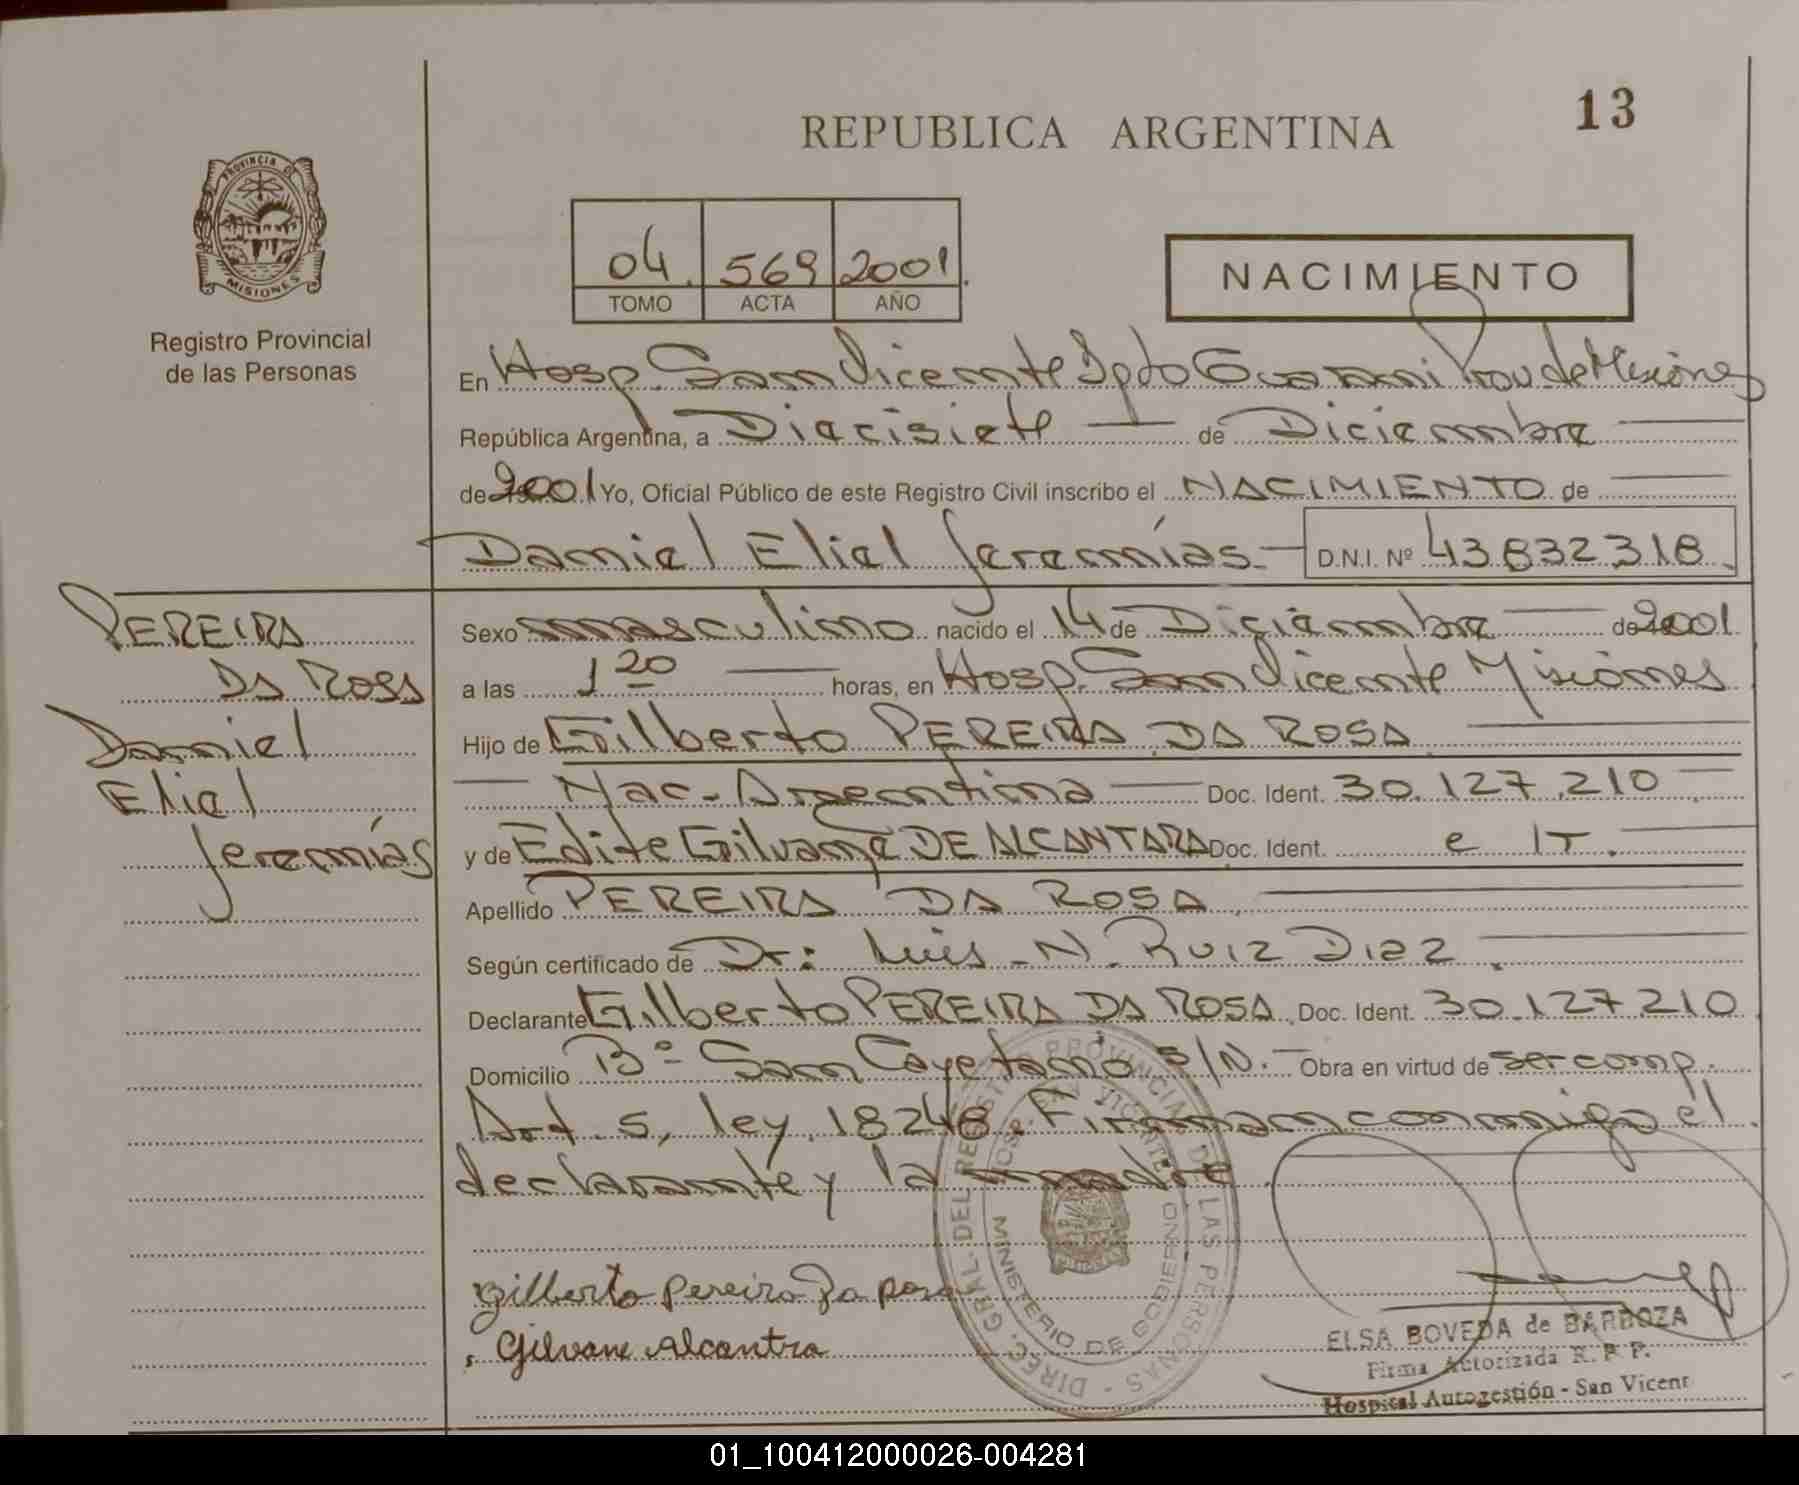 REPUBLICA ARGENTINA
13
PROVINCIA DE
MISIONES
Registro Provincial
de las Personas
04. 569 2001.
TOMO ACTA AÑO
NACIMIENTO
En Hosp. San Vicente Dpto Guarani Prov de Misiones
República Argentina, a Diecisiete de Diciembre
de 2001 Yo, Oficial Público de este Registro Civil inscribo el NACIMIENTO de
Daniel Eliel Jeremías - D.N.I. Nº 43.832.318.
PEREIRA
DA ROSA
Daniel
Eliel
Jeremías
Sexo masculino nacido el 14 de Diciembre de 2001
a las 1 20 horas, en Hosp. San Vicente Misiones
Hijo de Gilberto PEREIRA DA ROSA
Nac. Argentina Doc. Ident. 30.127.210
y de Edite Gilvane DE ALCANTARA Doc. Ident. e IT.
Apellido PEREIRA DA ROSA
Según certificado de Dr: Luis N. Ruiz Diaz
Declarante Gilberto PEREIRA DA ROSA Doc. Ident. 30.127.210
Domicilio Bº San Cayetano s/N. Obra en virtud de ser comp.
Art. 5, ley 18248. Firman conmigo el
declarante y la madre
DIREC. GRAL. DEL REGISTRO PROVINCIAL DE LAS PERSONAS
HOSP. SAN VICENTE
MINISTERIO DE GOBIERNO
Gilberto Pereira Da Rosa
Gilvane Alcantra
ELSA BOVEDA de BARBOZA
Firma Autorizada R. P. P.
Hospital Autogestión - San Vicent
01_100412000026-004281